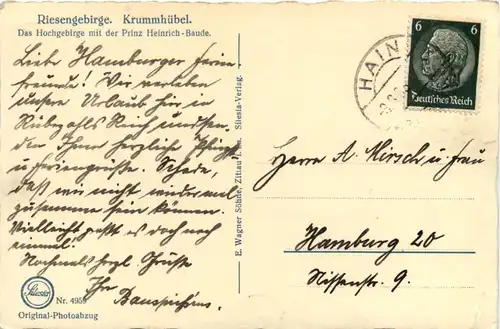 Riesengebirge. Krummhübel.
Das Hochgebirge mit der Prinz Heinrich-Baude.
Liebe Hamburger Ferien-
freunde! Wir verleben
unsere Urlaub hier in
Rübezahls Reich und sen-
den Ihnen herzliche Pfingst-
u. Feriengrüße. Schade,
daß wir nicht wieder mal
zusamme sein können.
Vielleicht paßt es doch noch
einmal!
Nochmals herzl. Grüße
Ihr
Nr. 495
Original-Photoabzug
E. Wagner Söhne, Zittau i. Sa. Silesia-Verlag.
HAIN
6 6
Deutsches Reich
Herrn A. Hirsch u. Frau
Hamburg 20
Nissenstr. 9.